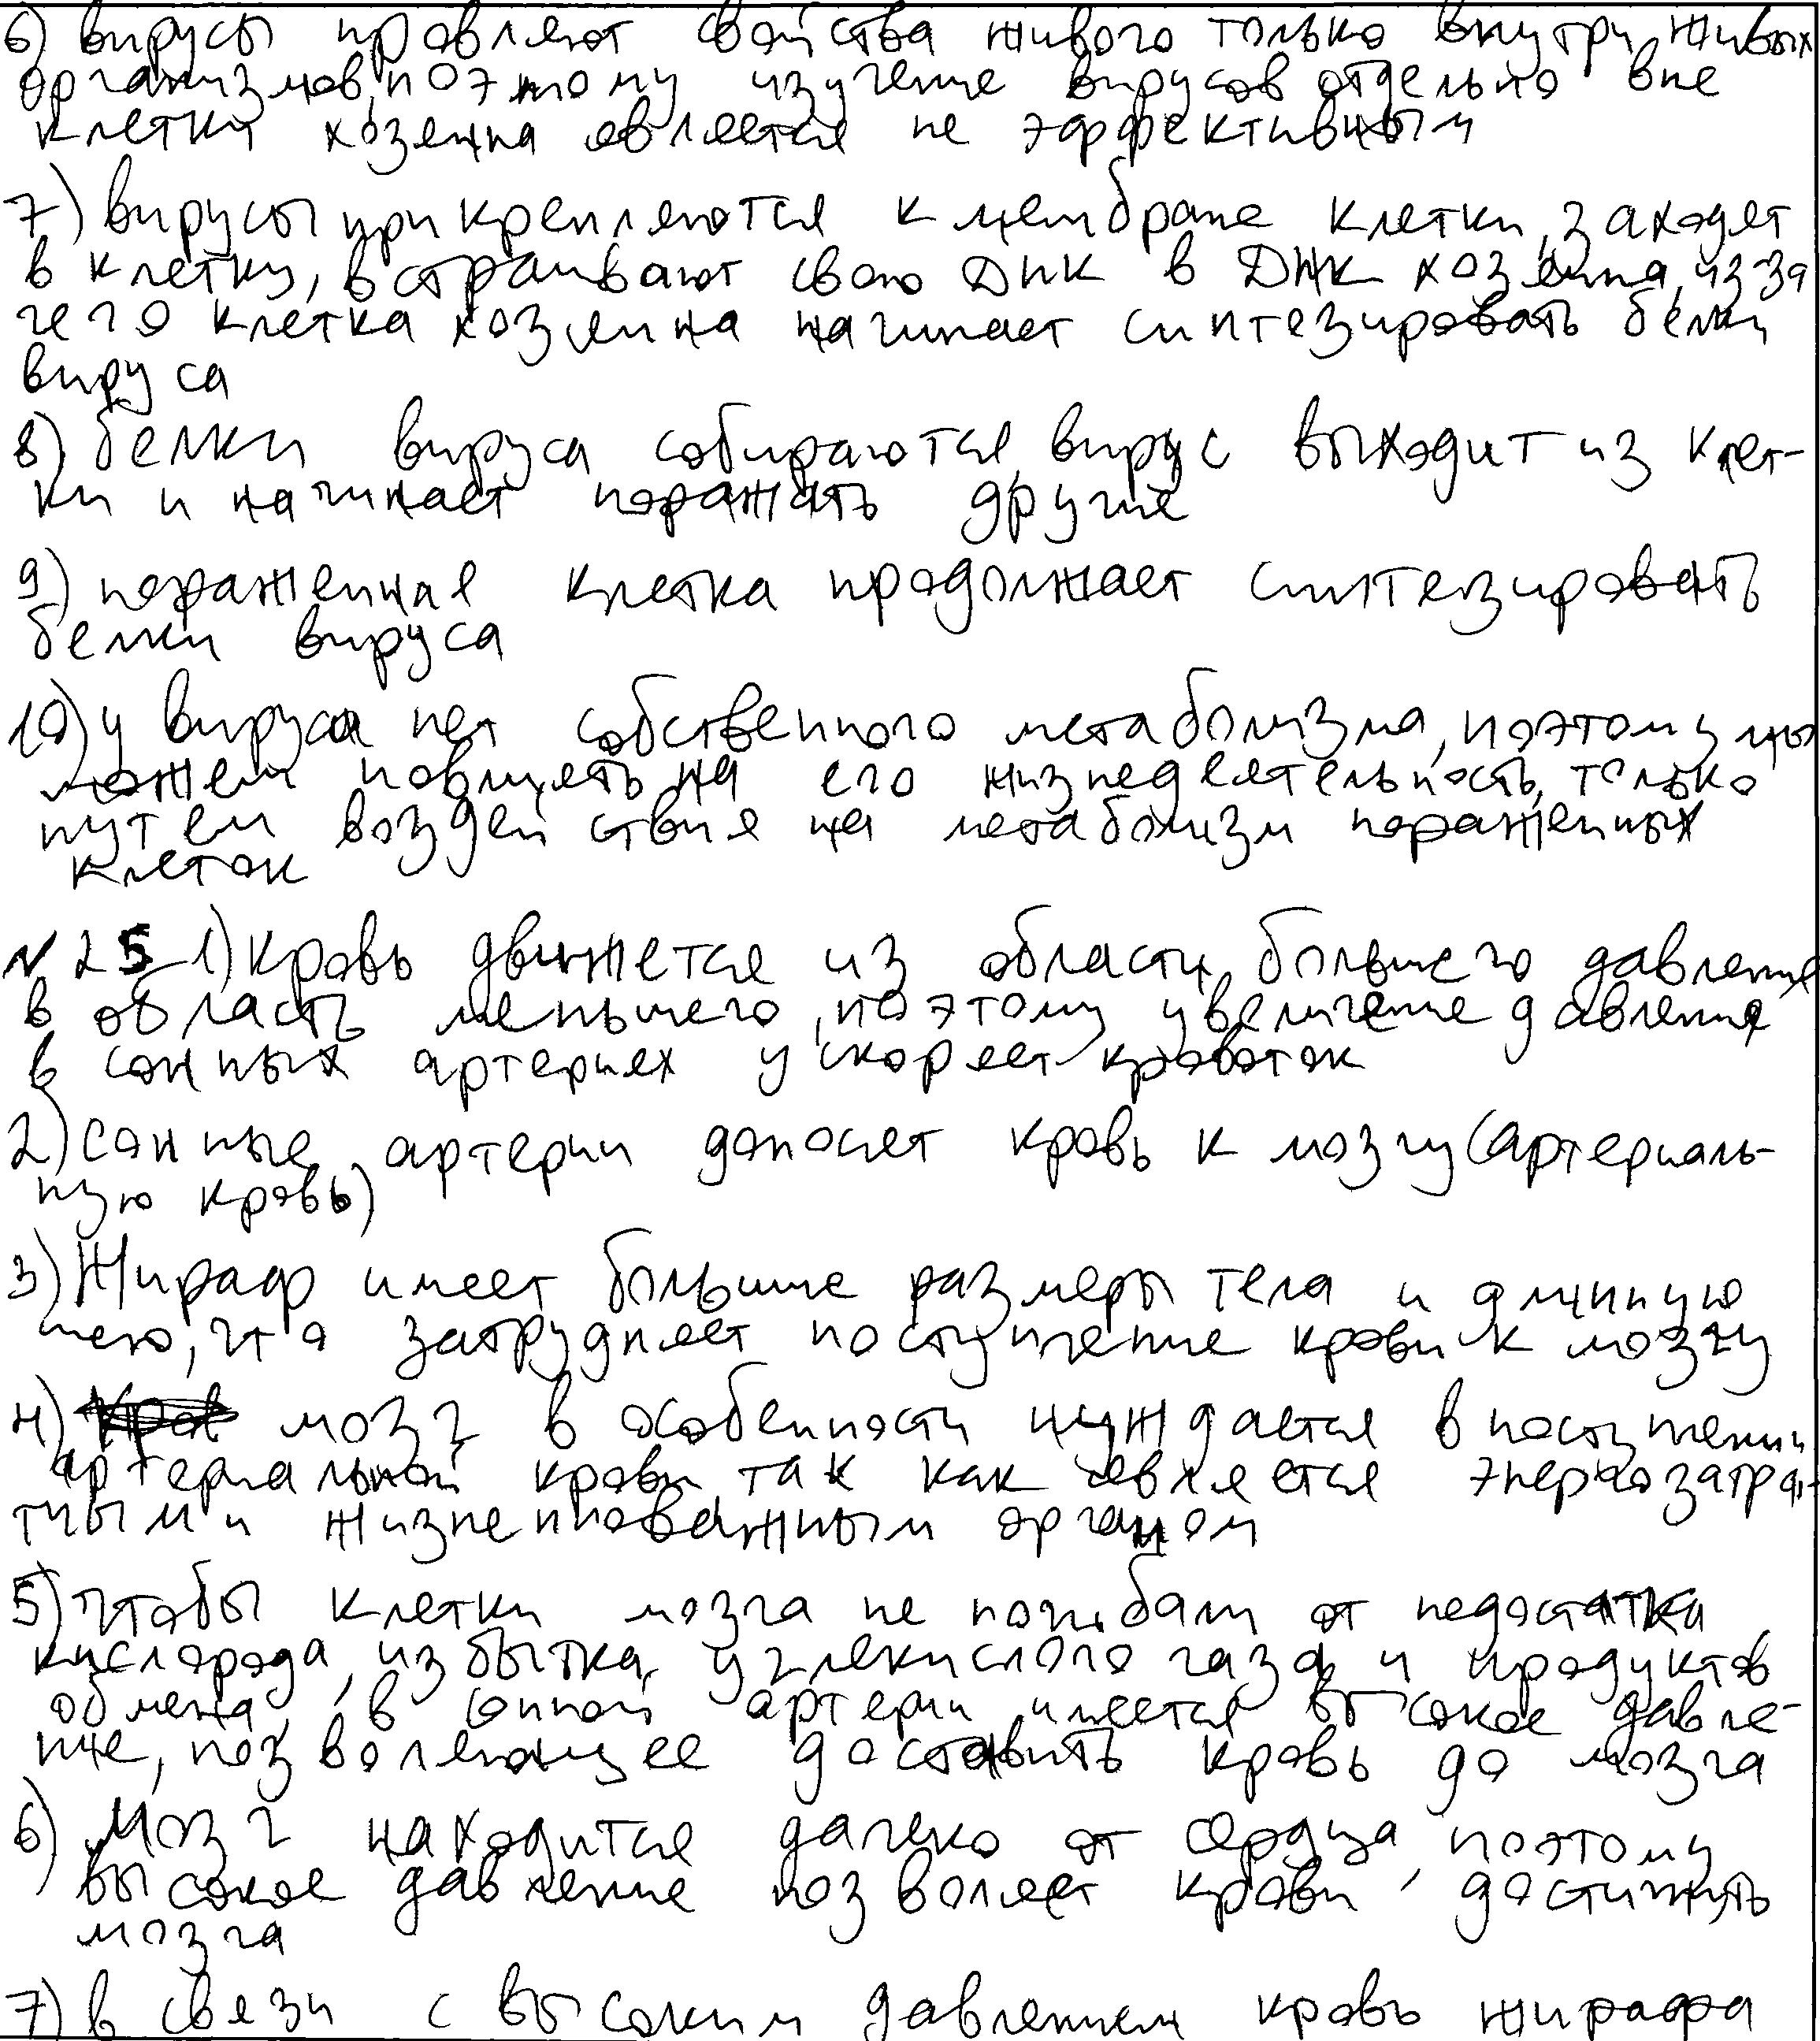 6) вирусы проявляют свойства живого только внутри живых
организмов, поэтому изучение вирусов отдельно вне
клетки хозяина является не эффективным
7) вирусы прикрепляются к мембране клетки, заходят
в клетку, встраивают свою ДНК в ДНК хозяина, из-за
чего клетка хозяина начинает синтезировать белки
вируса
8) белки вируса собираются, вирус выходит из клет-
ки и начинает поражать другие
9) пораженная клетка продолжает синтезировать
белки вируса
10) у вируса нет собственного метаболизма, поэтому мы
можем повлиять на его жизнедеятельность, только
путем воздействия на метаболизм пораженных
клеток
№25 1) Кровь движется из области большего давления
в область меньшего, поэтому увеличение давления
в сонных артериях ускоряет кровоток
2) Сонные артерии доносят кровь к мозгу (артериаль-
ную кровь)
3) Жираф имеет большие размеры тела и длинную
шею, что затрудняет поступление крови к мозгу
4) мозг в особенности нуждается в поступлении
артериальной крови, так как является энергозатра-
тным и жизненноважным органом
5) Чтобы клетки мозга не погибали от недостатка
кислорода, избытка углекислого газа и продуктов
обмена, в сонной артерии имеется высокое давле-
ние, позволяющее доставить кровь до мозга
6) Мозг находится далеко от сердца, поэтому
высокое давление позволяет крови достигнуть
мозга
7) в связи с высоким давлением кровь жирафа